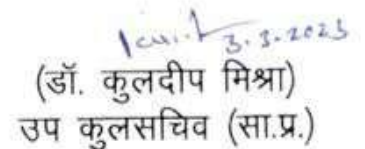 3.3.2023
(डॉ. कुलदीप मिश्रा)
उप कुलसचिव (सा.प्र.)